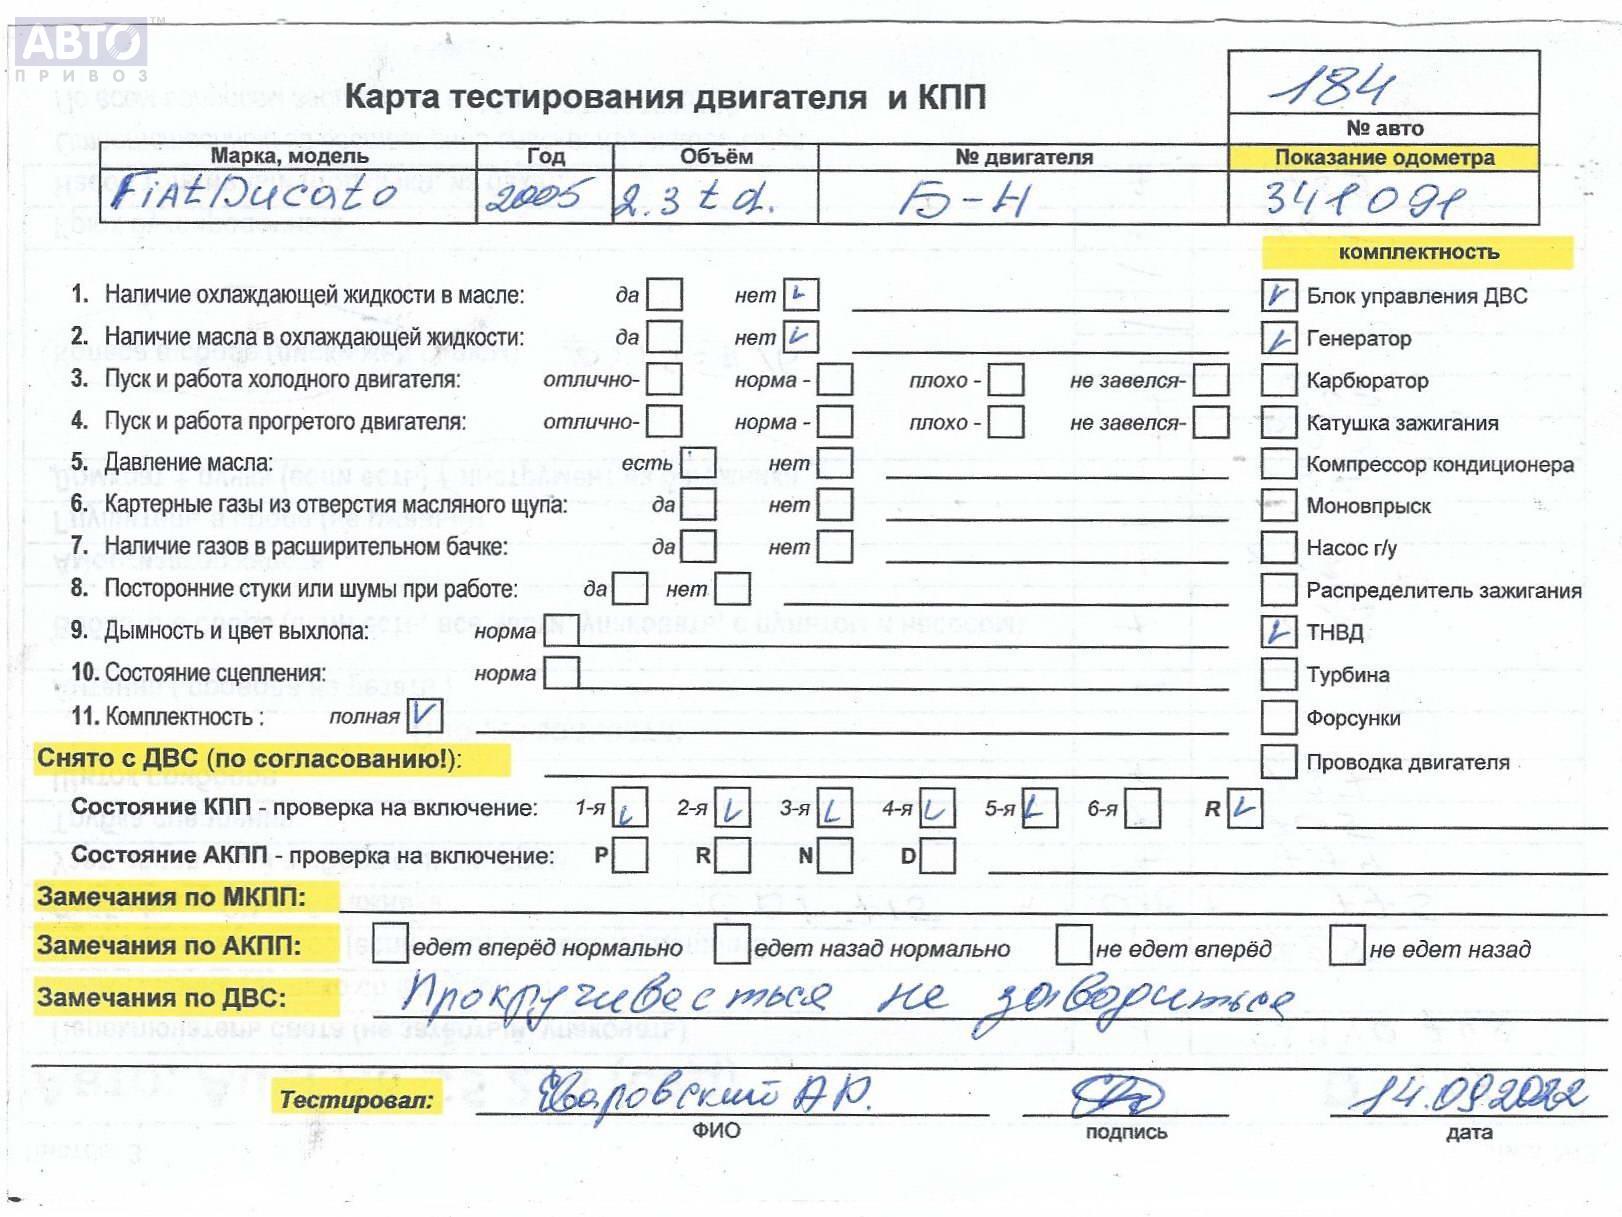 АВТО™
ПРИВОЗ
184
Карта тестирования двигателя и КПП
№ авто
Марка, модель Год Объём № двигателя Показание одометра
Fiat Ducato 2005 2.3 td. Б-Н 341091
комплектность
1. Наличие охлаждающей жидкости в масле: да нет Блок управления ДВС
2. Наличие масла в охлаждающей жидкости: да нет Генератор
3. Пуск и работа холодного двигателя: отлично- норма - плохо - не завелся- Карбюратор
4. Пуск и работа прогретого двигателя: отлично- норма - плохо - не завелся- Катушка зажигания
5. Давление масла: есть нет Компрессор кондиционера
6. Картерные газы из отверстия масляного щупа: да нет Моновпрыск
7. Наличие газов в расширительном бачке: да нет Насос г/у
8. Посторонние стуки или шумы при работе: да нет Распределитель зажигания
9. Дымность и цвет выхлопа: норма ТНВД
10. Состояние сцепления: норма Турбина
11. Комплектность : полная Форсунки
Снято с ДВС (по согласованию!): Проводка двигателя
Состояние КПП - проверка на включение: 1-я 2-я 3-я 4-я 5-я 6-я R
Состояние АКПП - проверка на включение: P R N D
Замечания по МКПП:
Замечания по АКПП: едет вперёд нормально едет назад нормально не едет вперёд не едет назад
Замечания по ДВС: Прокручивається не заводиться
Тестировал: А.Р. 14.09.2022
ФИО подпись дата